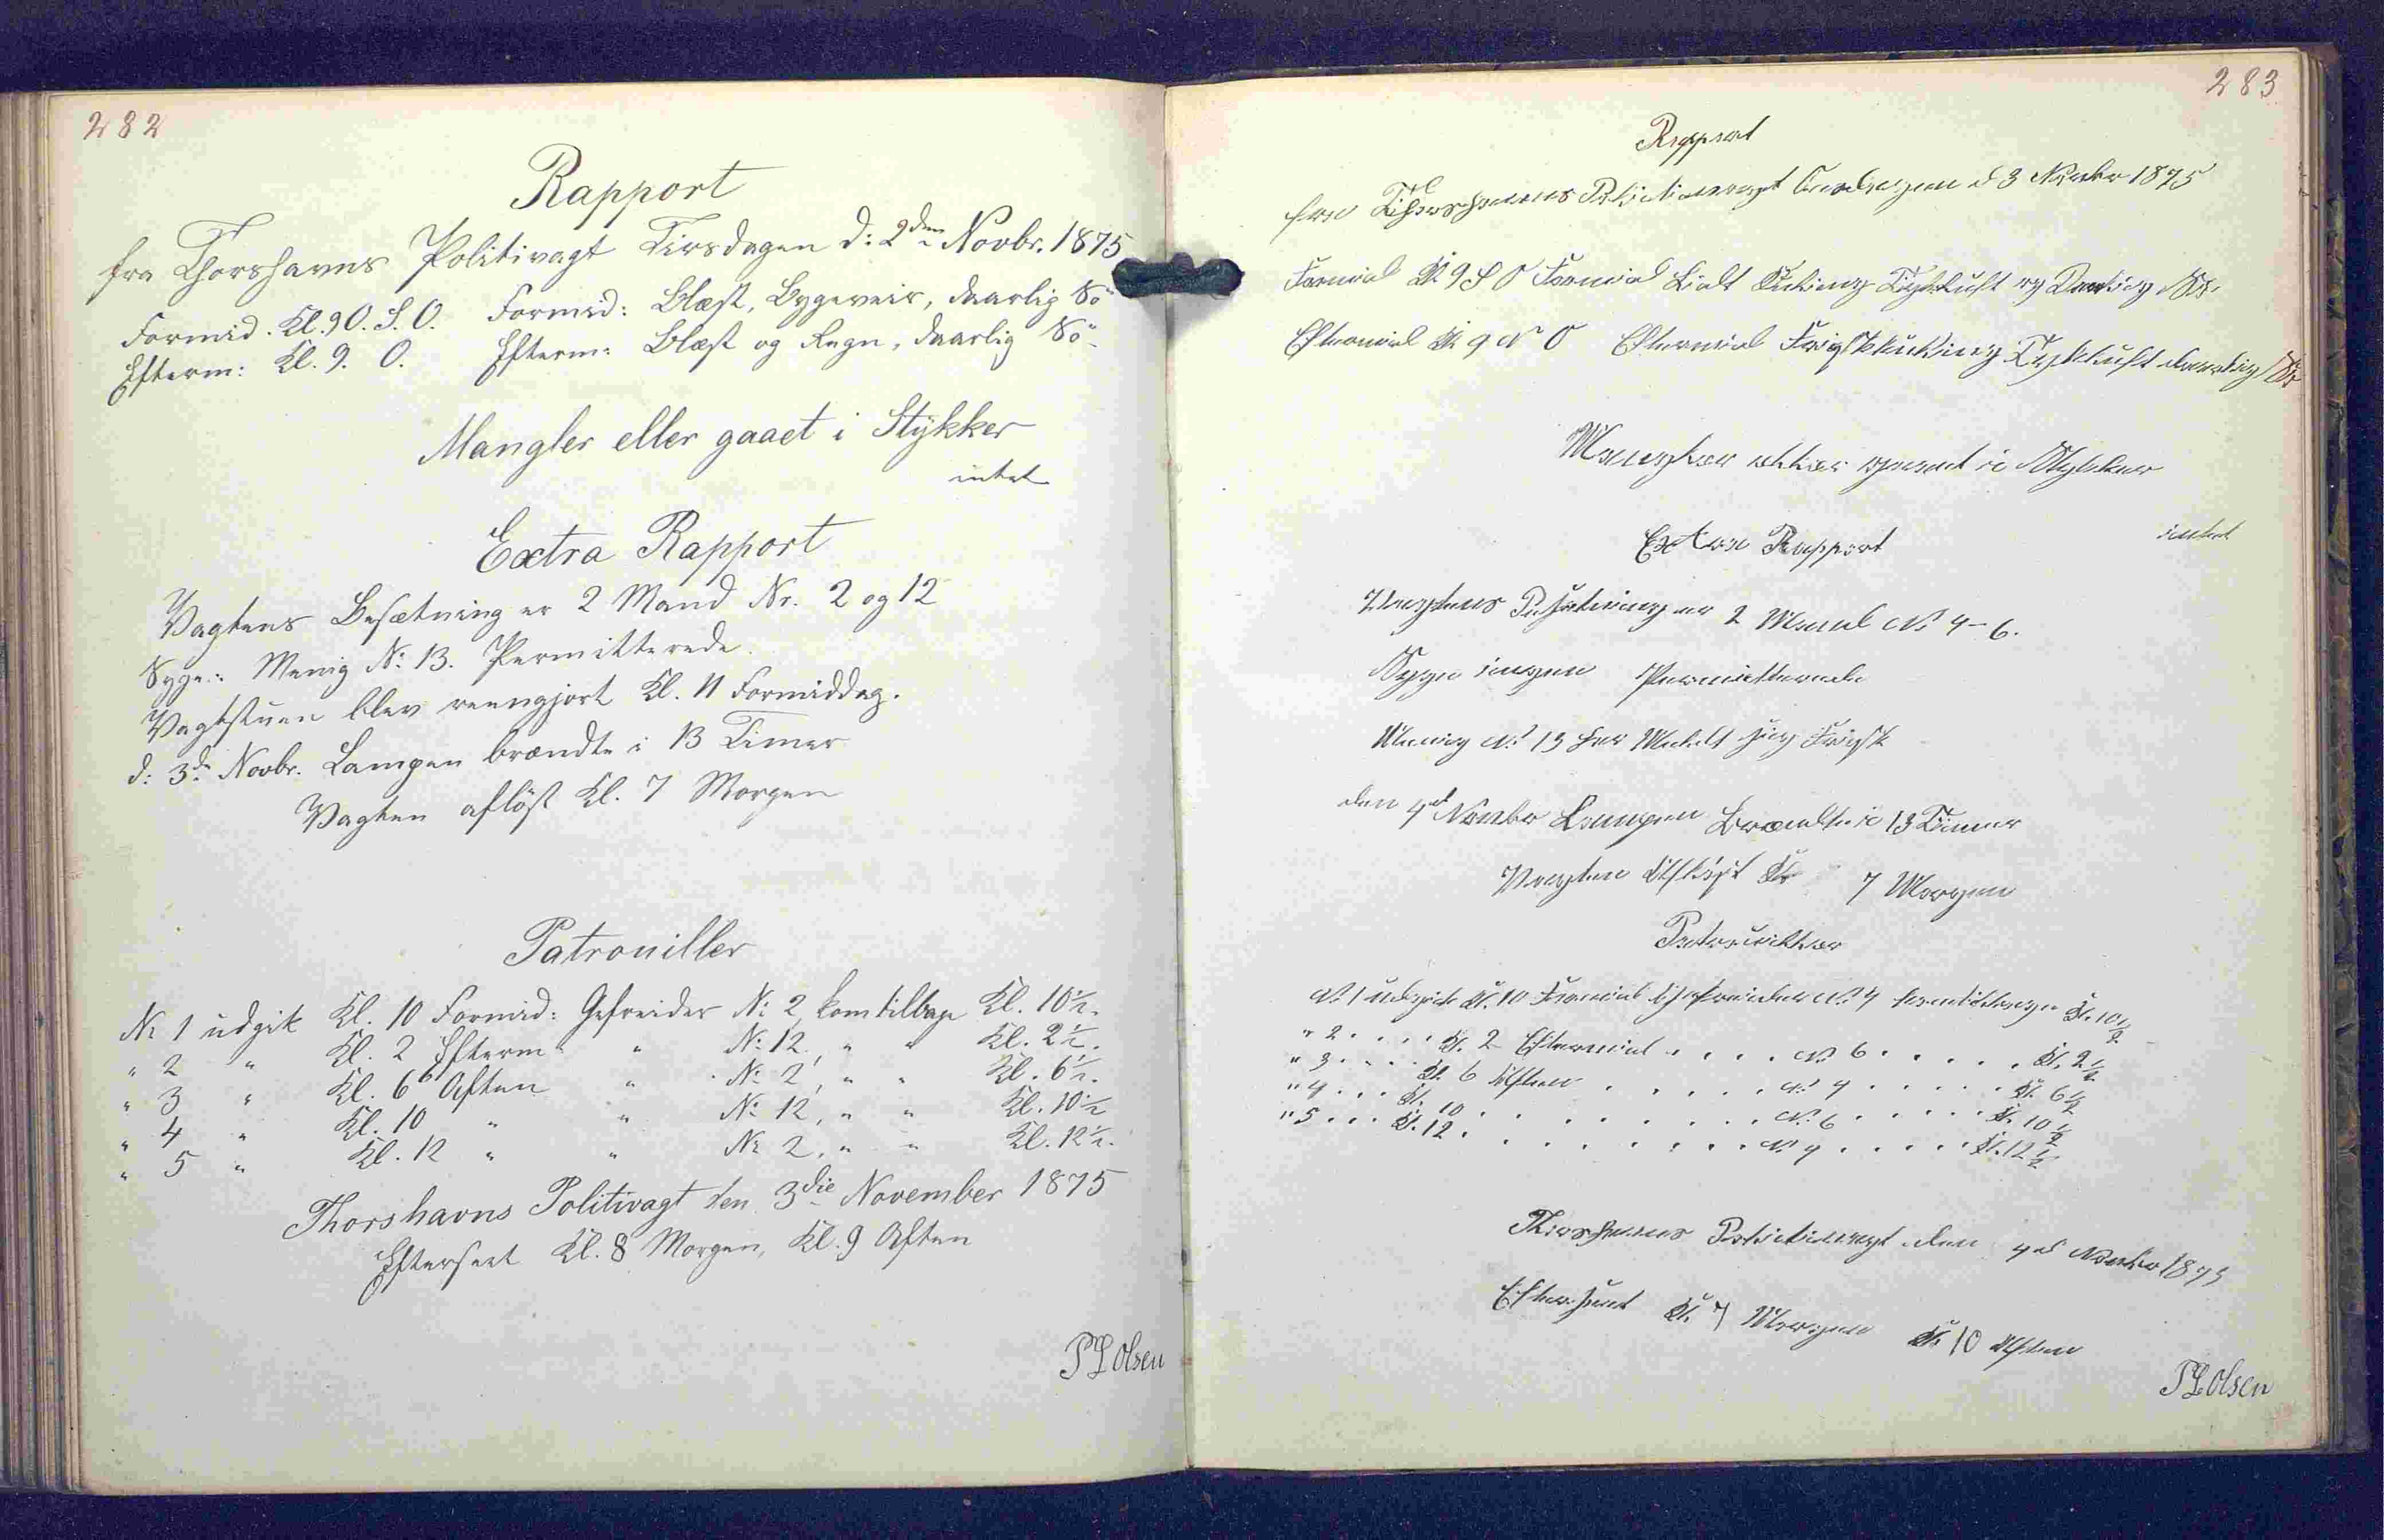 282
Rapport
fra Thorshavns Politivagt Tirsdagen d: 2den Novbr. 1875
Formid. Kl. 9 O. S. O. Formid: Blæst, Bygeveir, daarlig Sö
Efterm: Kl. 9. O. Efterm: Blæst og Regn, daarlig Sö
Mangler eller gaaet i Stykker
intet
Extra Rapport
Vagtens Besætning er 2 Mand Nr. 2 og 12
Syge: Menig No: 13. Permitterede.
Vagtstuen blev reengjort Kl. 11 Formiddag.
d: 3de Novbr. Lampen brændte i 13 Timer
Vagten aflöst Kl. 7 Morgen
Patrouiller
Nr 1 udgik Kl. 10 Formid: Gefreider No: 2 kom tilbage Kl. 10½.
" 2 " Kl. 2 Efterm " No: 12, " " Kl. 2½.
" 3 " Kl. 6 Aften " No: 2, " " Kl. 6½.
" 4 " Kl. 10 " " No: 12, " " Kl. 10½
" 5 " Kl. 12 " " Nr 2, " " Kl. 12½.
Thorshavns Politivagt den 3die November 1875
Efterseet Kl. 8 Morgen, Kl. 9 Aften
P L Olsen
283
Rapport
fra Thorshavns Politivagt Onsdagen d 3 Novbr 1875
Formid Kl 9 S O Formid Lidt Kuling Tykluft og Daarlig Sö.
Eftermid Kl 9 N O Eftermid Frisk Kuling Tykluft daarlig Sö
Mangler eller gaaet i Stykker
Extra Rapport intet
Vagtens Besætning er 2 Mand No 4 - 6.
Syge ingen Permitterede
Menig No 13 har Meldt sig Frisk
den 4d Novbr Lampen Brændte i 13 Timer
Vagten Aflöst Kl 7 Morgen
Patrouiller
No 1 udgik Kl. 10 Formid Gefreider No 4 komtilbage Kl. 10½
" 2 . . . . Kl. 2 Eftermid . . . . No 6 . . . . . Kl. 2½
" 3 . . . . Kl. 6 Aften . . . . . No 4 . . . . . Kl. 6½
" 4 . . . Kl. 10 . . . . . . . . No. 6 . . . . . Kl. 10½
" 5 . . . Kl. 12 . . . . . . . . No 4 . . . . . Kl. 12½
Thorshavns Politivagt den 4d Novbr 1875
Efterseet Kl. 7 Morgen Kl. 10 Aften
P L Olsen